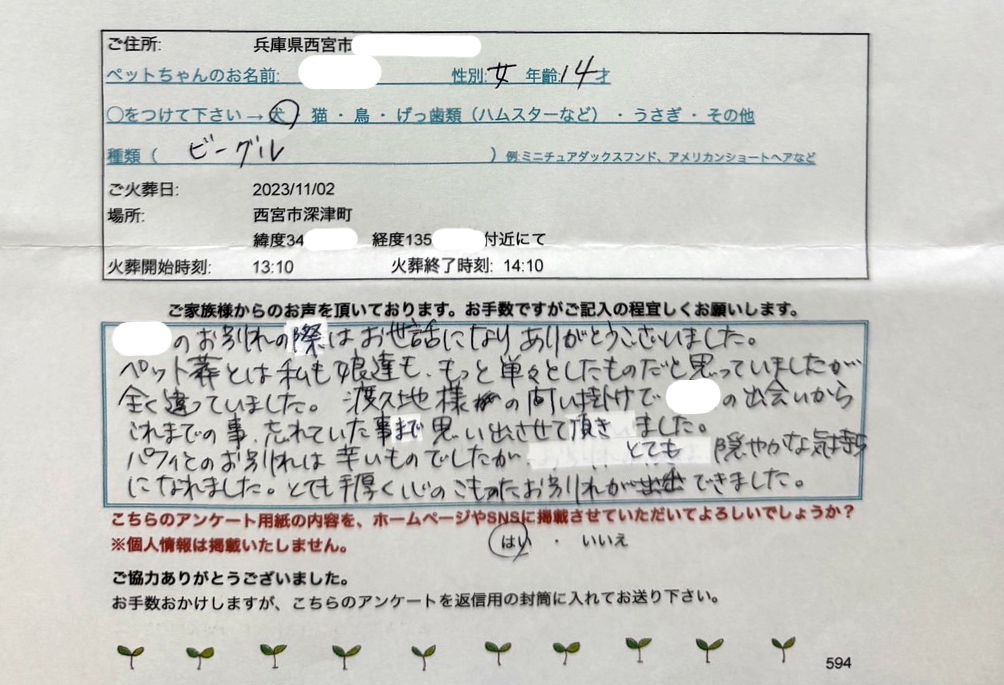 ご住所: 兵庫県西宮市
ペットちゃんのお名前: 性別:女 年齢:14才
〇をつけて下さい→犬 猫・鳥・げっ歯類（ハムスターなど）・うさぎ・その他
種類（ ビーグル ）例:ミニチュアダックスフンド、アメリカンショートヘアなど
ご火葬日: 2023/11/02
場所: 西宮市深津町
緯度34 経度135 付近にて
火葬開始時刻: 13:10 火葬終了時刻: 14:10
ご家族様からのお声を頂いております。お手数ですがご記入の程宜しくお願いします。
のお別れの際はお世話になりありがとうございました。
ペット葬とは私も娘達も、もっと単々としたものだと思っていましたが
全く違っていました。渡久地様の問い掛けで の出会いから
これまでの事、忘れていた事まで思い出させて頂きました。
パフィとのお別れは辛いものでしたが とても 隠やかな気持ち
になれました。とても手厚く心のこもったお別れができました。
こちらのアンケート用紙の内容を、ホームページやSNSに掲載させていただいてよろしいでしょうか？
※個人情報は掲載いたしません。 はい ・ いいえ
ご協力ありがとうございました。
お手数おかけしますが、こちらのアンケートを返信用の封筒に入れてお送り下さい。
594